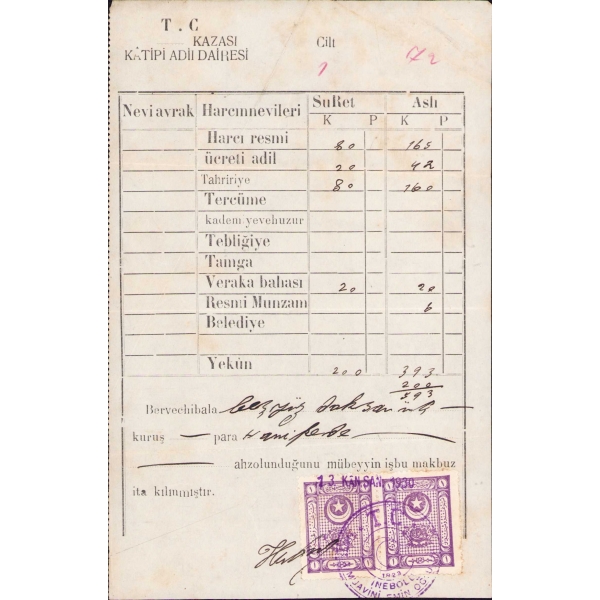 T . C
KAZASI
KÂTİPİ ADİL DAİRESİ
Cilt
1
72
Nevi avrak Harcınnevileri SuRet Aslı
K P K P
Harcı resmi 80 165
ücreti adil 20 42
Tahririye 80 160
Tercüme
kadem-yevehuzur
Tebliğiye
Tamga
Veraka bahası 20 20
Resmi Munzam 6
Belediye
Yekûn 200 393
200
593
Bervechibala beş yüz doksan üç
kuruş — para
ahzolunduğunu mübeyyin işbu makbuz
ita kılınmıştır.
13 KÂN SANİ 1930
T C
1929
İNEBOLU
MUAVİNİ EMİN OĞLU